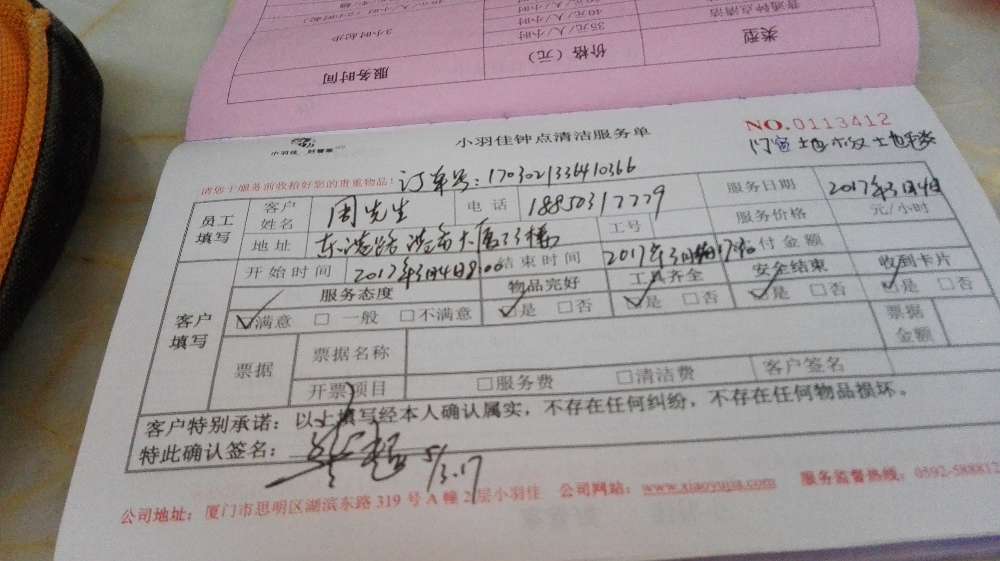 类型
价格（元）
服务时间
普通钟点清洁
35元/人/小时
40元/人/小时
3小时起步
小羽佳 好管家
小羽佳钟点清洁服务单
NO.0113412
请您于服务前收检好您的贵重物品！
订单号：1703021336410366
员工填写
客户姓名
周先生
电话
18850317779
服务日期
2017年3月4日
地址
工号
服务价格
元/小时
客户填写
开始时间
2017年3月4日8:00
结束时间
付金额
服务态度
物品完好
工具齐全
安全结束
收到卡片
满意 □ 一般 □不满意
是 □否
是 □否
是 □否
是 □否
票据
票据名称
票据金额
开票项目
□服务费 □清洁费
客户签名
客户特别承诺：以上填写经本人确认属实，不存在任何纠纷，不存在任何物品损坏。
特此确认签名：
5/3.17
公司地址：厦门市思明区湖滨东路319号A幢2层小羽佳 公司网站：www.xiaoyujia.com 服务监督热线：0592-588812